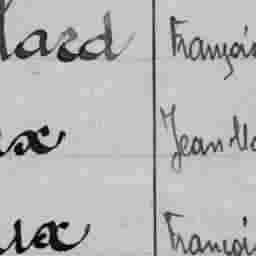 lard Françoi
x Jean Ma
ux Françoi